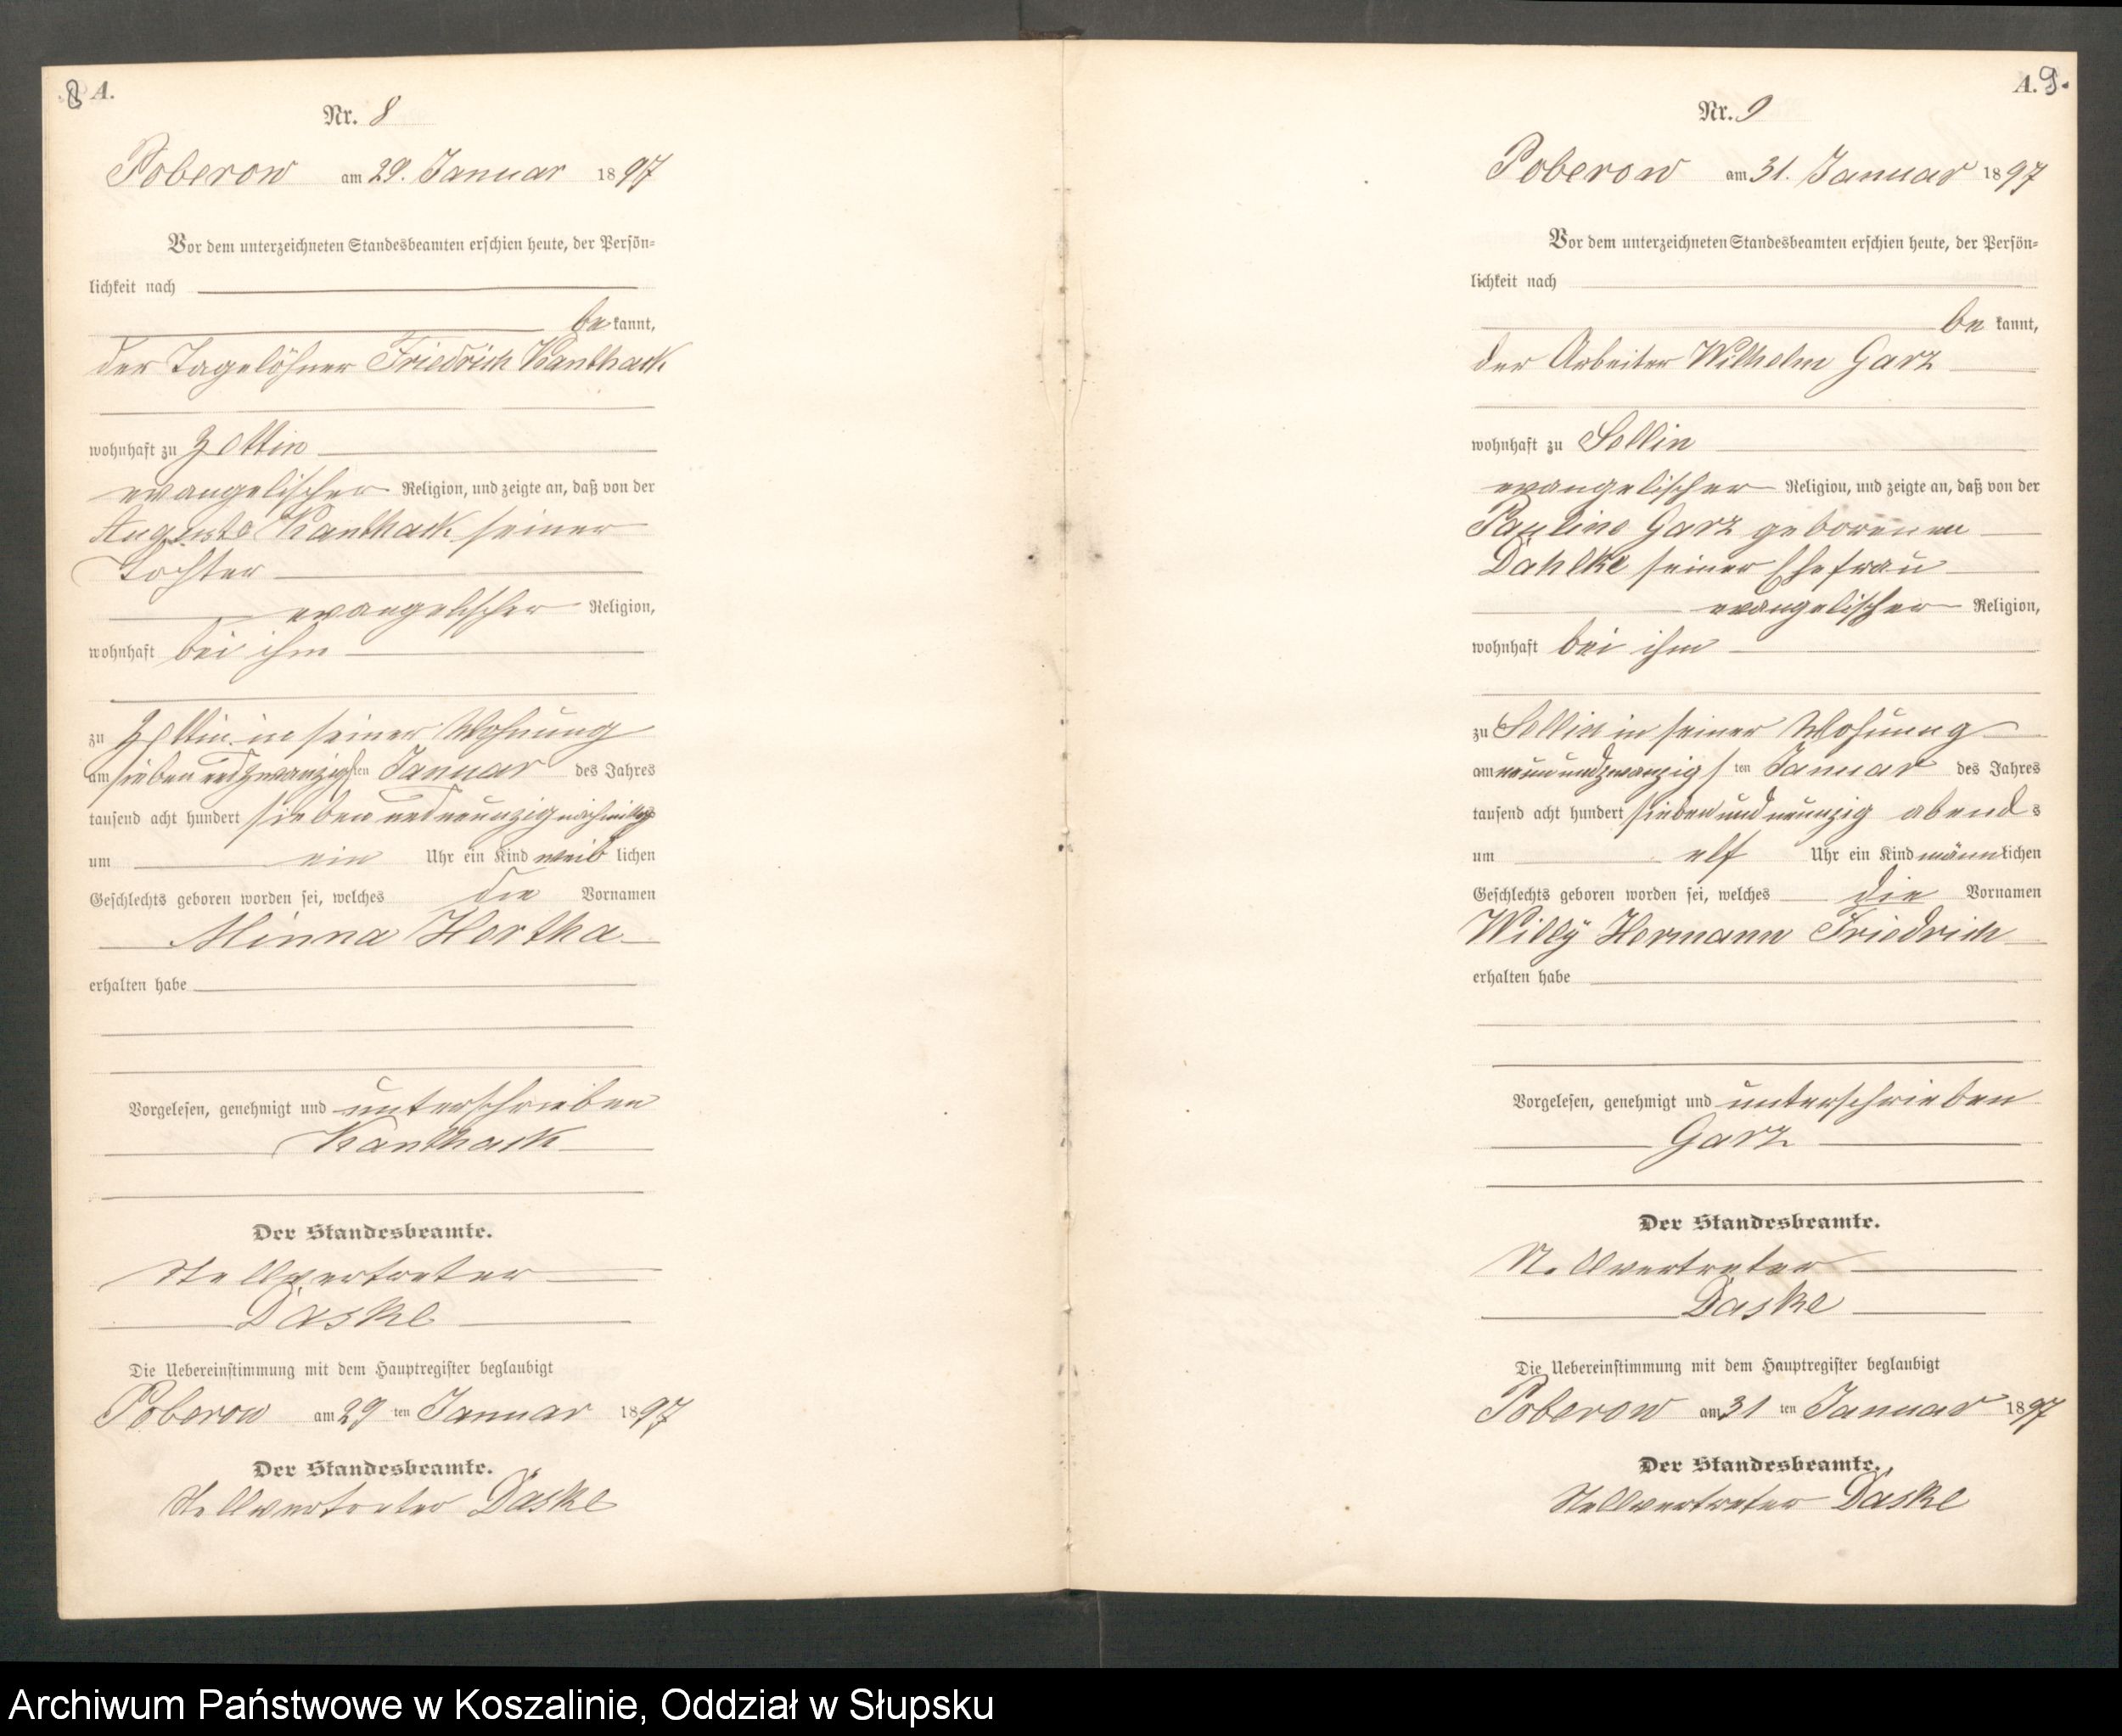 8 A.
Nr. 8
Poberow am 29. Januar 1897
Vor dem unterzeichneten Standesbeamten erschien heute, der Persön-
lichkeit nach
be kannt,
der Tagelöhner Friedrich Kanthack
wohnhaft zu Zettin
evangelischer Religion, und zeigte an, daß von der
Auguste Kanthack seiner
Tochter
evangelischer Religion,
wohnhaft bei ihm
zu Zettin in seiner Wohnung
am sieben und zwanzigsten Januar des Jahres
tausend acht hundert sieben und neunzig nachmittags
um ein Uhr ein Kind weib lichen
Geschlechts geboren worden sei, welches die Vornamen
Minna Hertha
erhalten habe
Vorgelesen, genehmigt und unterschrieben
Kanthack
Der Standesbeamte.
Stellvertreter
Daske
Die Uebereinstimmung mit dem Hauptregister beglaubigt
Poberow am 29 ten Januar 1897
Der Standesbeamte.
Stellvertreter Daske
A. 9.
Nr. 9
Poberow am 31. Januar 1897
Vor dem unterzeichneten Standesbeamten erschien heute, der Persön-
lichkeit nach
be kannt,
der Arbeiter Wilhelm Garz
wohnhaft zu Sellin
evangelischer Religion, und zeigte an, daß von der
Pauline Garz geborenen
Dahlke seiner Ehefrau
evangelischer Religion,
wohnhaft bei ihm
zu Sellin in seiner Wohnung
am neunundzwanzigs ten Januar des Jahres
tausend acht hundert sieben und neunzig abends
um elf Uhr ein Kind männlichen
Geschlechts geboren worden sei, welches die Vornamen
Willy Hermann Friedrich
erhalten habe
Vorgelesen, genehmigt und unterschrieben
Garz
Der Standesbeamte.
Stellvertreter
Daske
Die Uebereinstimmung mit dem Hauptregister beglaubigt
Poberow am 31 ten Januar 1897
Der Standesbeamte.
Stellvertreter Daske
Archiwum Państwowe w Koszalinie, Oddział w Słupsku